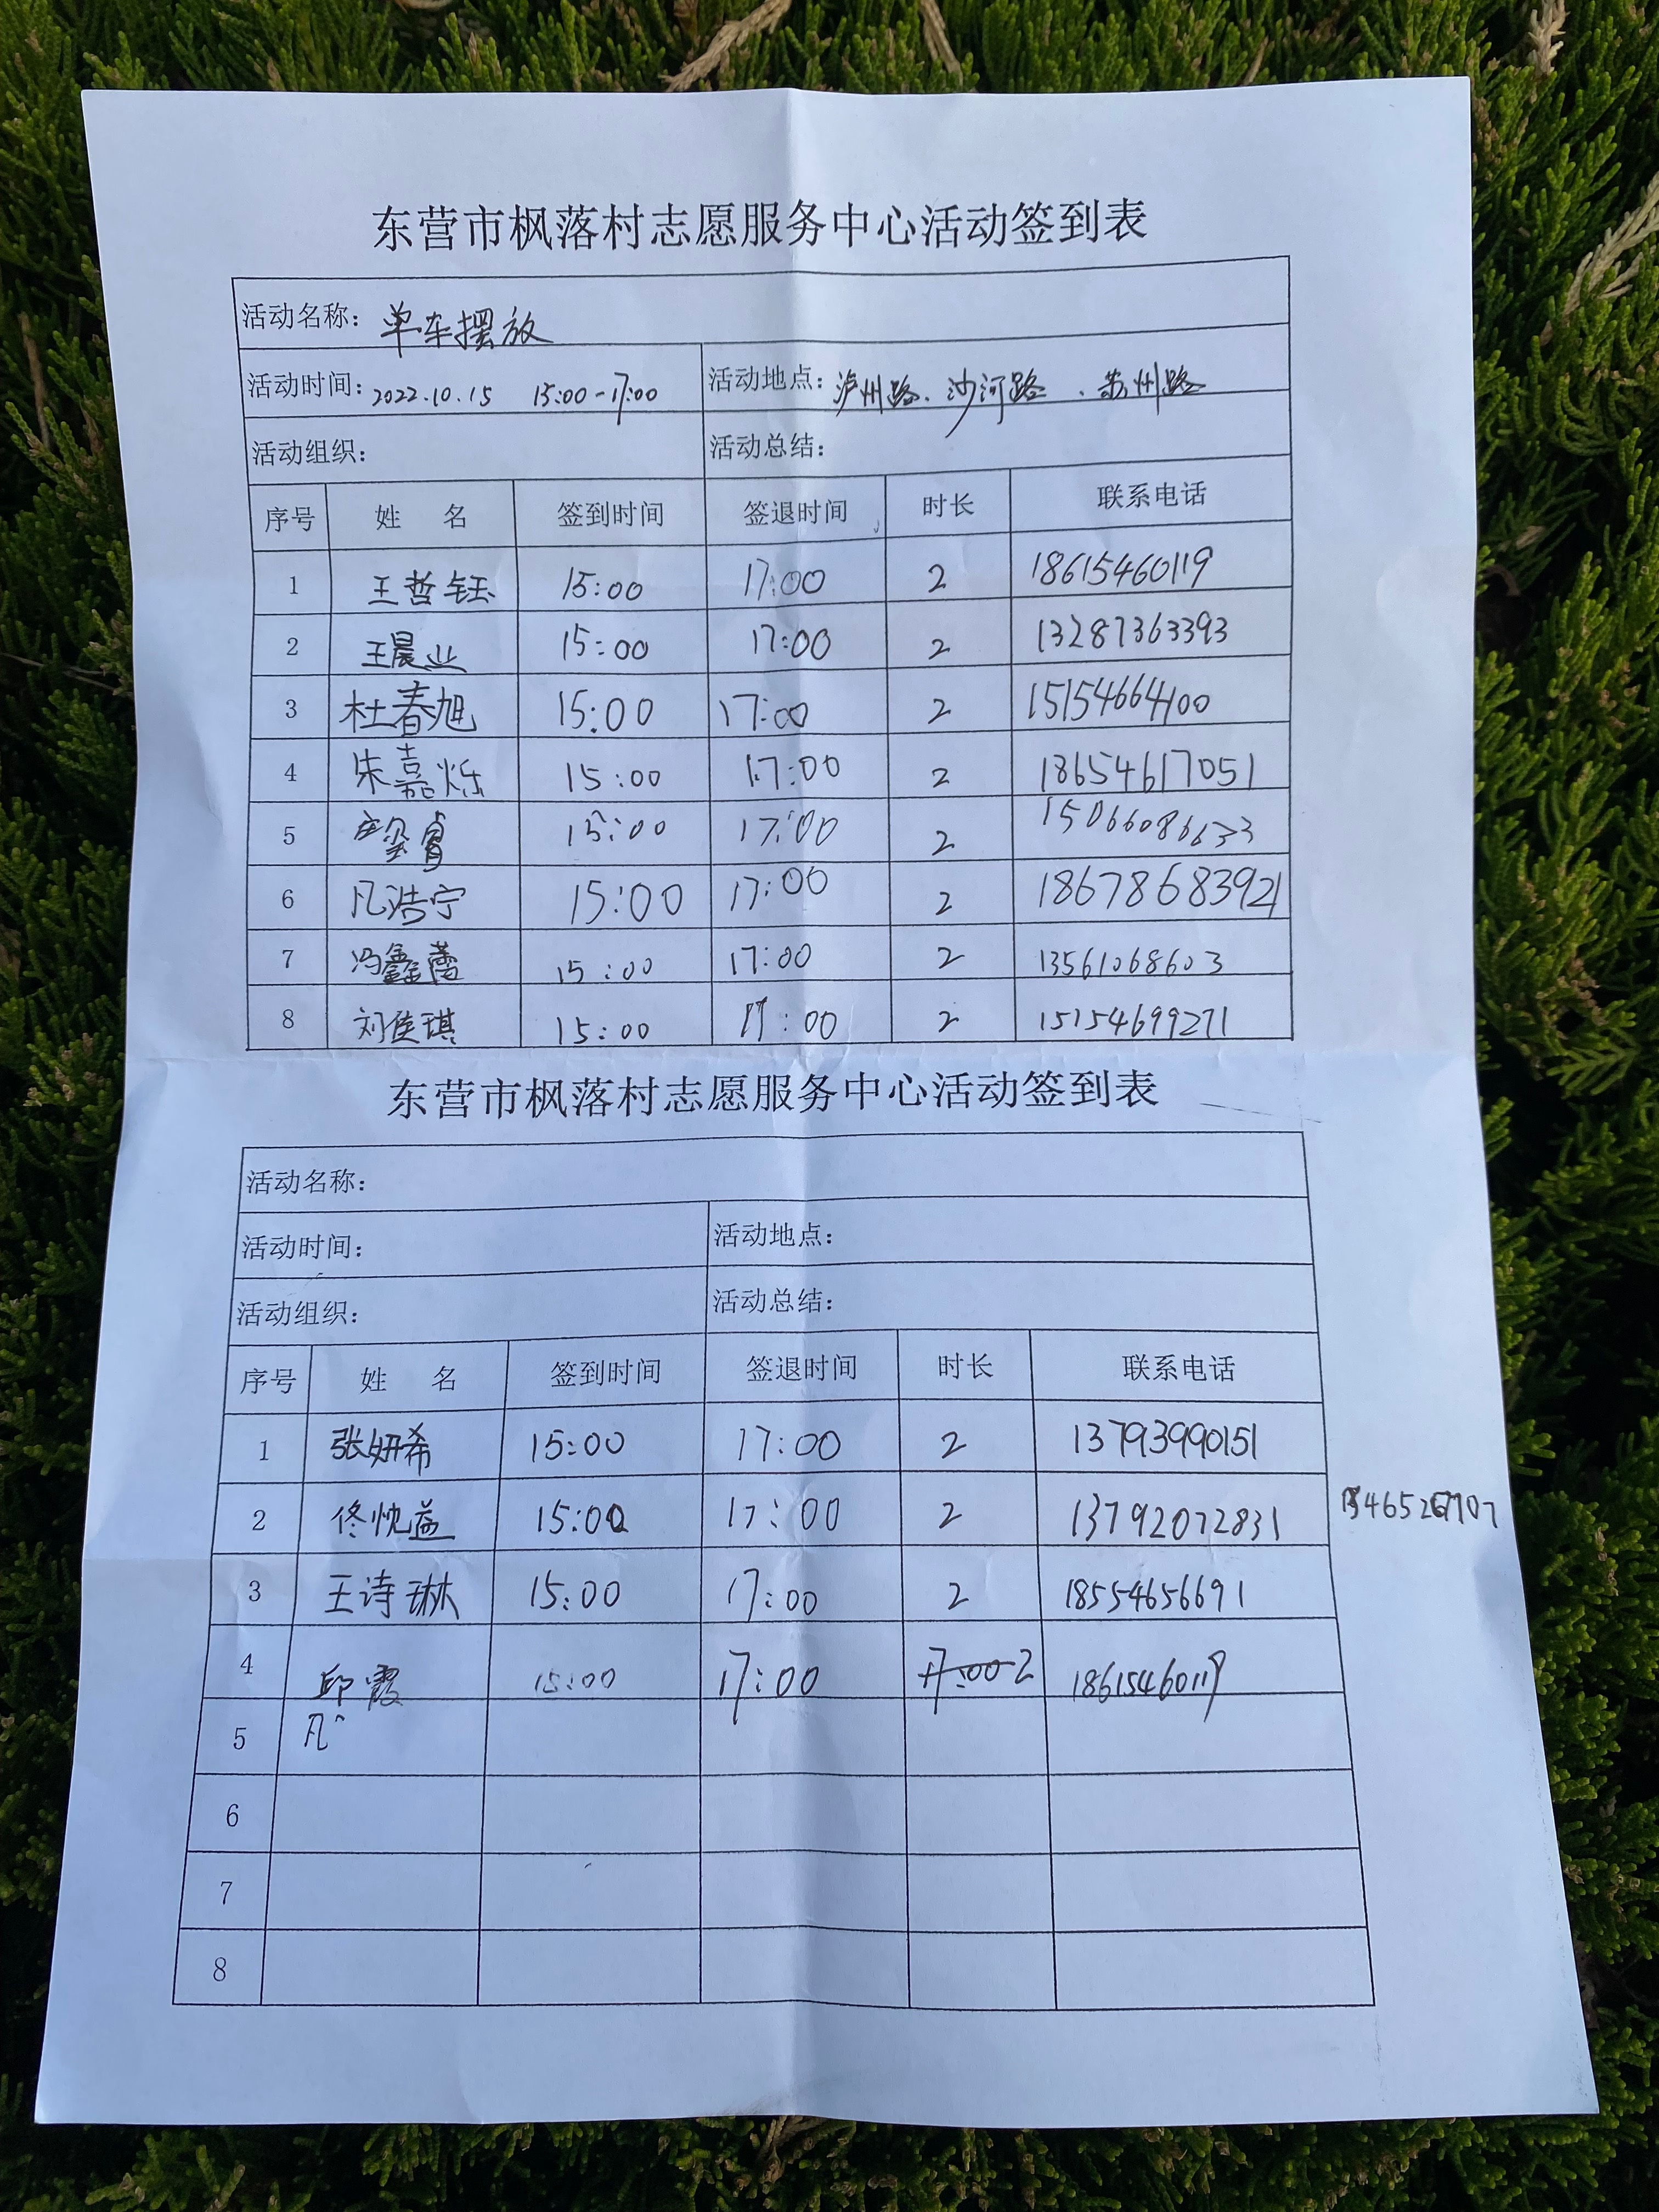 东营市枫落村志愿服务中心活动签到表
活动名称：单车摆放
活动时间：2022.10.15 15:00-17:00 活动地点：泸州路、沙河路、苏州路
活动组织： 活动总结：
序号 姓 名 签到时间 签退时间 时长 联系电话
1 王哲钰 15:00 17:00 2 18615460119
2 王晨业 15:00 17:00 2 13287363393
3 杜春旭 15:00 17:00 2 15154664100
4 朱嘉烁 15:00 17:00 2 18654617051
5 15:00 17:00 2 15066086633
6 凡浩宁 15:00 17:00 2 18678683921
7 冯鑫蕾 15:00 17:00 2 13561068603
8 刘俊琪 15:00 17:00 2 15154699271
东营市枫落村志愿服务中心活动签到表
活动名称：
活动时间： 活动地点：
活动组织： 活动总结：
序号 姓 名 签到时间 签退时间 时长 联系电话
1 张妍希 15:00 17:00 2 13793990151
2 佟忱益 15:00 17:00 2 13792072831
3 王诗琳 15:00 17:00 2 18554656691
4 邱霞 15:00 17:00 17:00 2 18615460119
5 凡
6
7
8